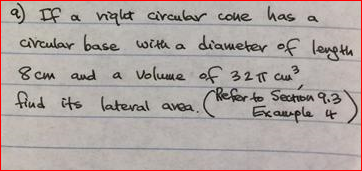 9) If a right circular cone has a
circular base with a diameter of length
8 cm and a volume of 32π cm³,
find its lateral area. (Refer to Section 9.3
Example 4)